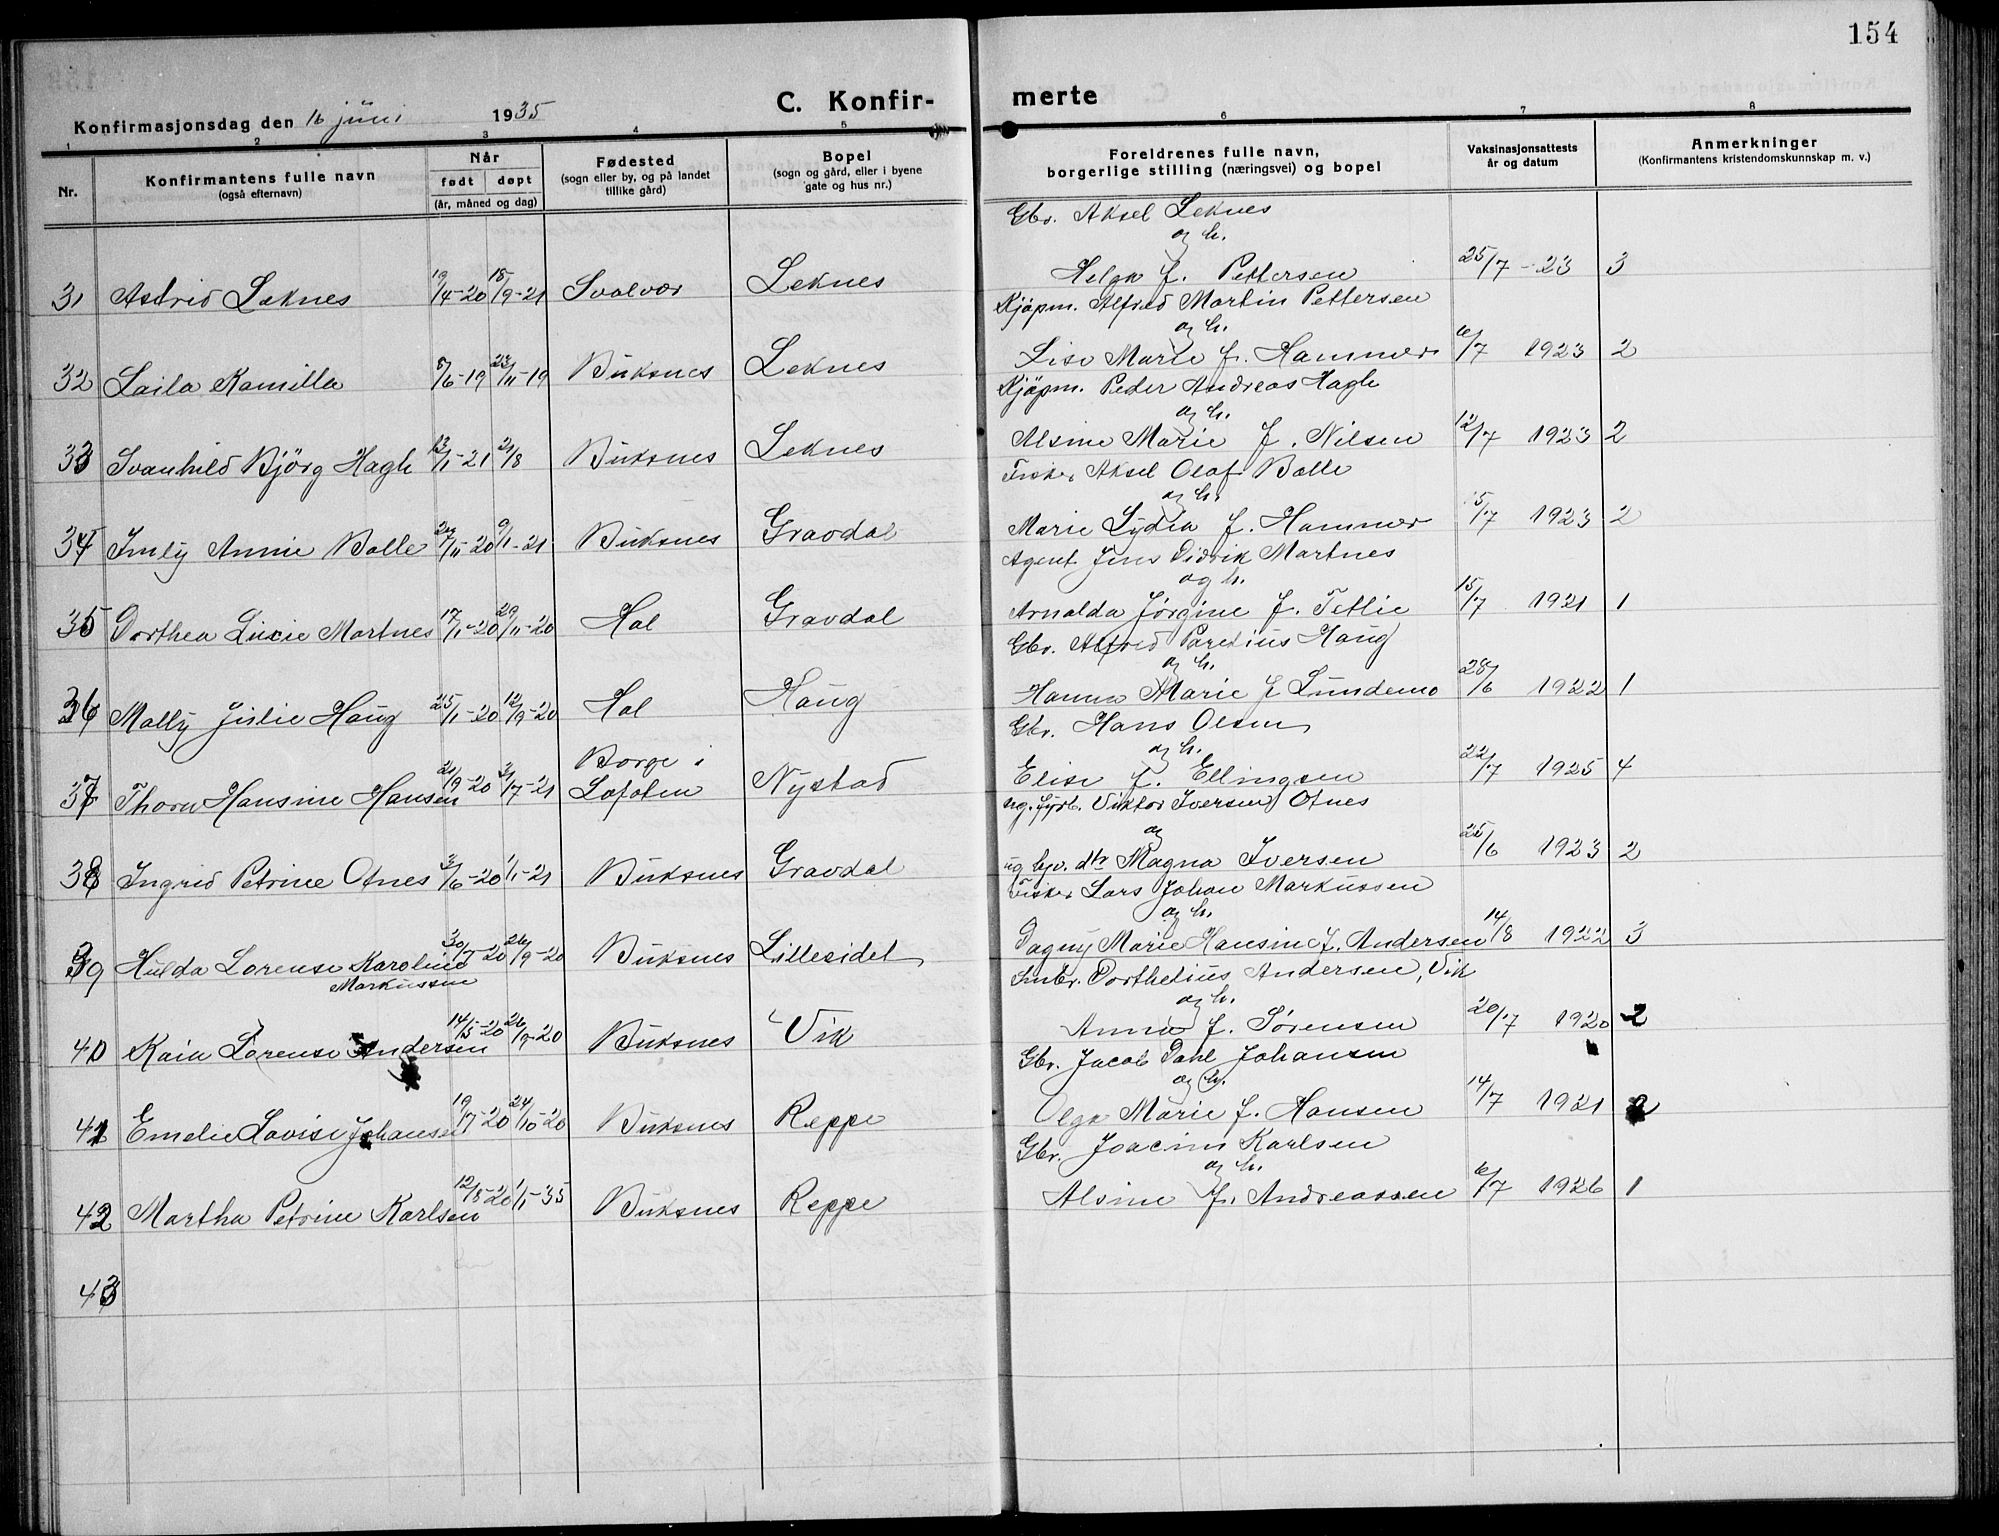 154
C. Konfir- merte
Konfirmasjonsdag den 16 juni 1935
1 2 3 4 5 6 7 8
Nr.
Konfirmantens fulle navn
(også efternavn)
Når
født døpt
(år, måned og dag)
Fødested
(sogn eller by, og på landet
tillike gård)
Bopel
(sogn og gård, eller i byene
gate og hus nr.)
Foreldrenes fulle navn,
borgerlige stilling (næringsvei) og bopel
Vaksinasjonsattests
år og datum
Anmerkninger
(Konfirmantens kristendomskunnskap m. v.)
Gbr. Aksel Leknes
og h.
31 Astrid Leknes 19/4-20 18/9-21 Svolvær Leknes Helga f. Pettersen 25/7-23 3
Kjøpm. Alfred Martin Pettersen
og h.
32 Laila Kamilla 8/6-19 23/11-19 Buksnes Leknes Lise Marie f. Hammer 6/7 1923 2
Kjøpm. Peder Andreas Hagh
og h.
33 Svanhild Bjørg Hagh 13/1-21 21/8 Buksnes Leknes Alsine Marie f. Nilsen 12/7 1923 2
Fisker Aksel Olaf Balle
og h.
34 Imly Annie Balle 24/11-20 9/1-21 Buksnes Gravdal Marie Lydia f. Hammer 15/7 1923 2
Agent Jens Didrik Martnes
og h.
35 Dorthea Lucie Martnes 17/1-20 29/11-20 Hol Gravdal Arnalda Jørgine f. Tetlie 15/7 1921 1
Gbr. Alfred Paretius Haug
og h.
36 Mally Julie Haug 25/1-20 12/9-20 Hol Haug Hanna Marie f Lundemo 28/6 1922 1
Gbr. Hans Olsen
og h.
37 Thora Hansine Hansen 21/9-20 31/7-21 Borge i Lofoten Nystad Elise f. Ellingsen 22/7 1925 4
ug. fyrb. Viktor Iversen Otnes
og
38 Ingrid Petrine Otnes 3/6-20 1/1-21 Buksnes Gravdal ug hjv. dtr Magna Iversen 25/6 1923 2
Fisker Lars Johan Markussen
og h.
39 Hulda Lorense Karoline 30/7-20 26/9-20 Buksnes Lilleeidet Dagny Marie Hansine f. Andersen 14/8 1922 3
Markussen
Småbr. Dorthelius Andersen, Vik
og h.
40 Kaia Lorense Andersen 14/5-20 26/9-20 Buksnes Vik Anna f. Sørensen 20/7 1920 2
Gbr. Jacob Dahl Johansen
og h.
41 Emelie Lovise Johansen 19/7-20 24/10-20 Buksnes Reppe Olga Marie f. Hansen 14/7 1921 2
Gbr. Joacim Karlsen
og h.
42 Martha Petrine Karlsen 12/8-20 1/1-35 Buksnes Reppe Alsine f. Andreassen 6/7 1926 1
43